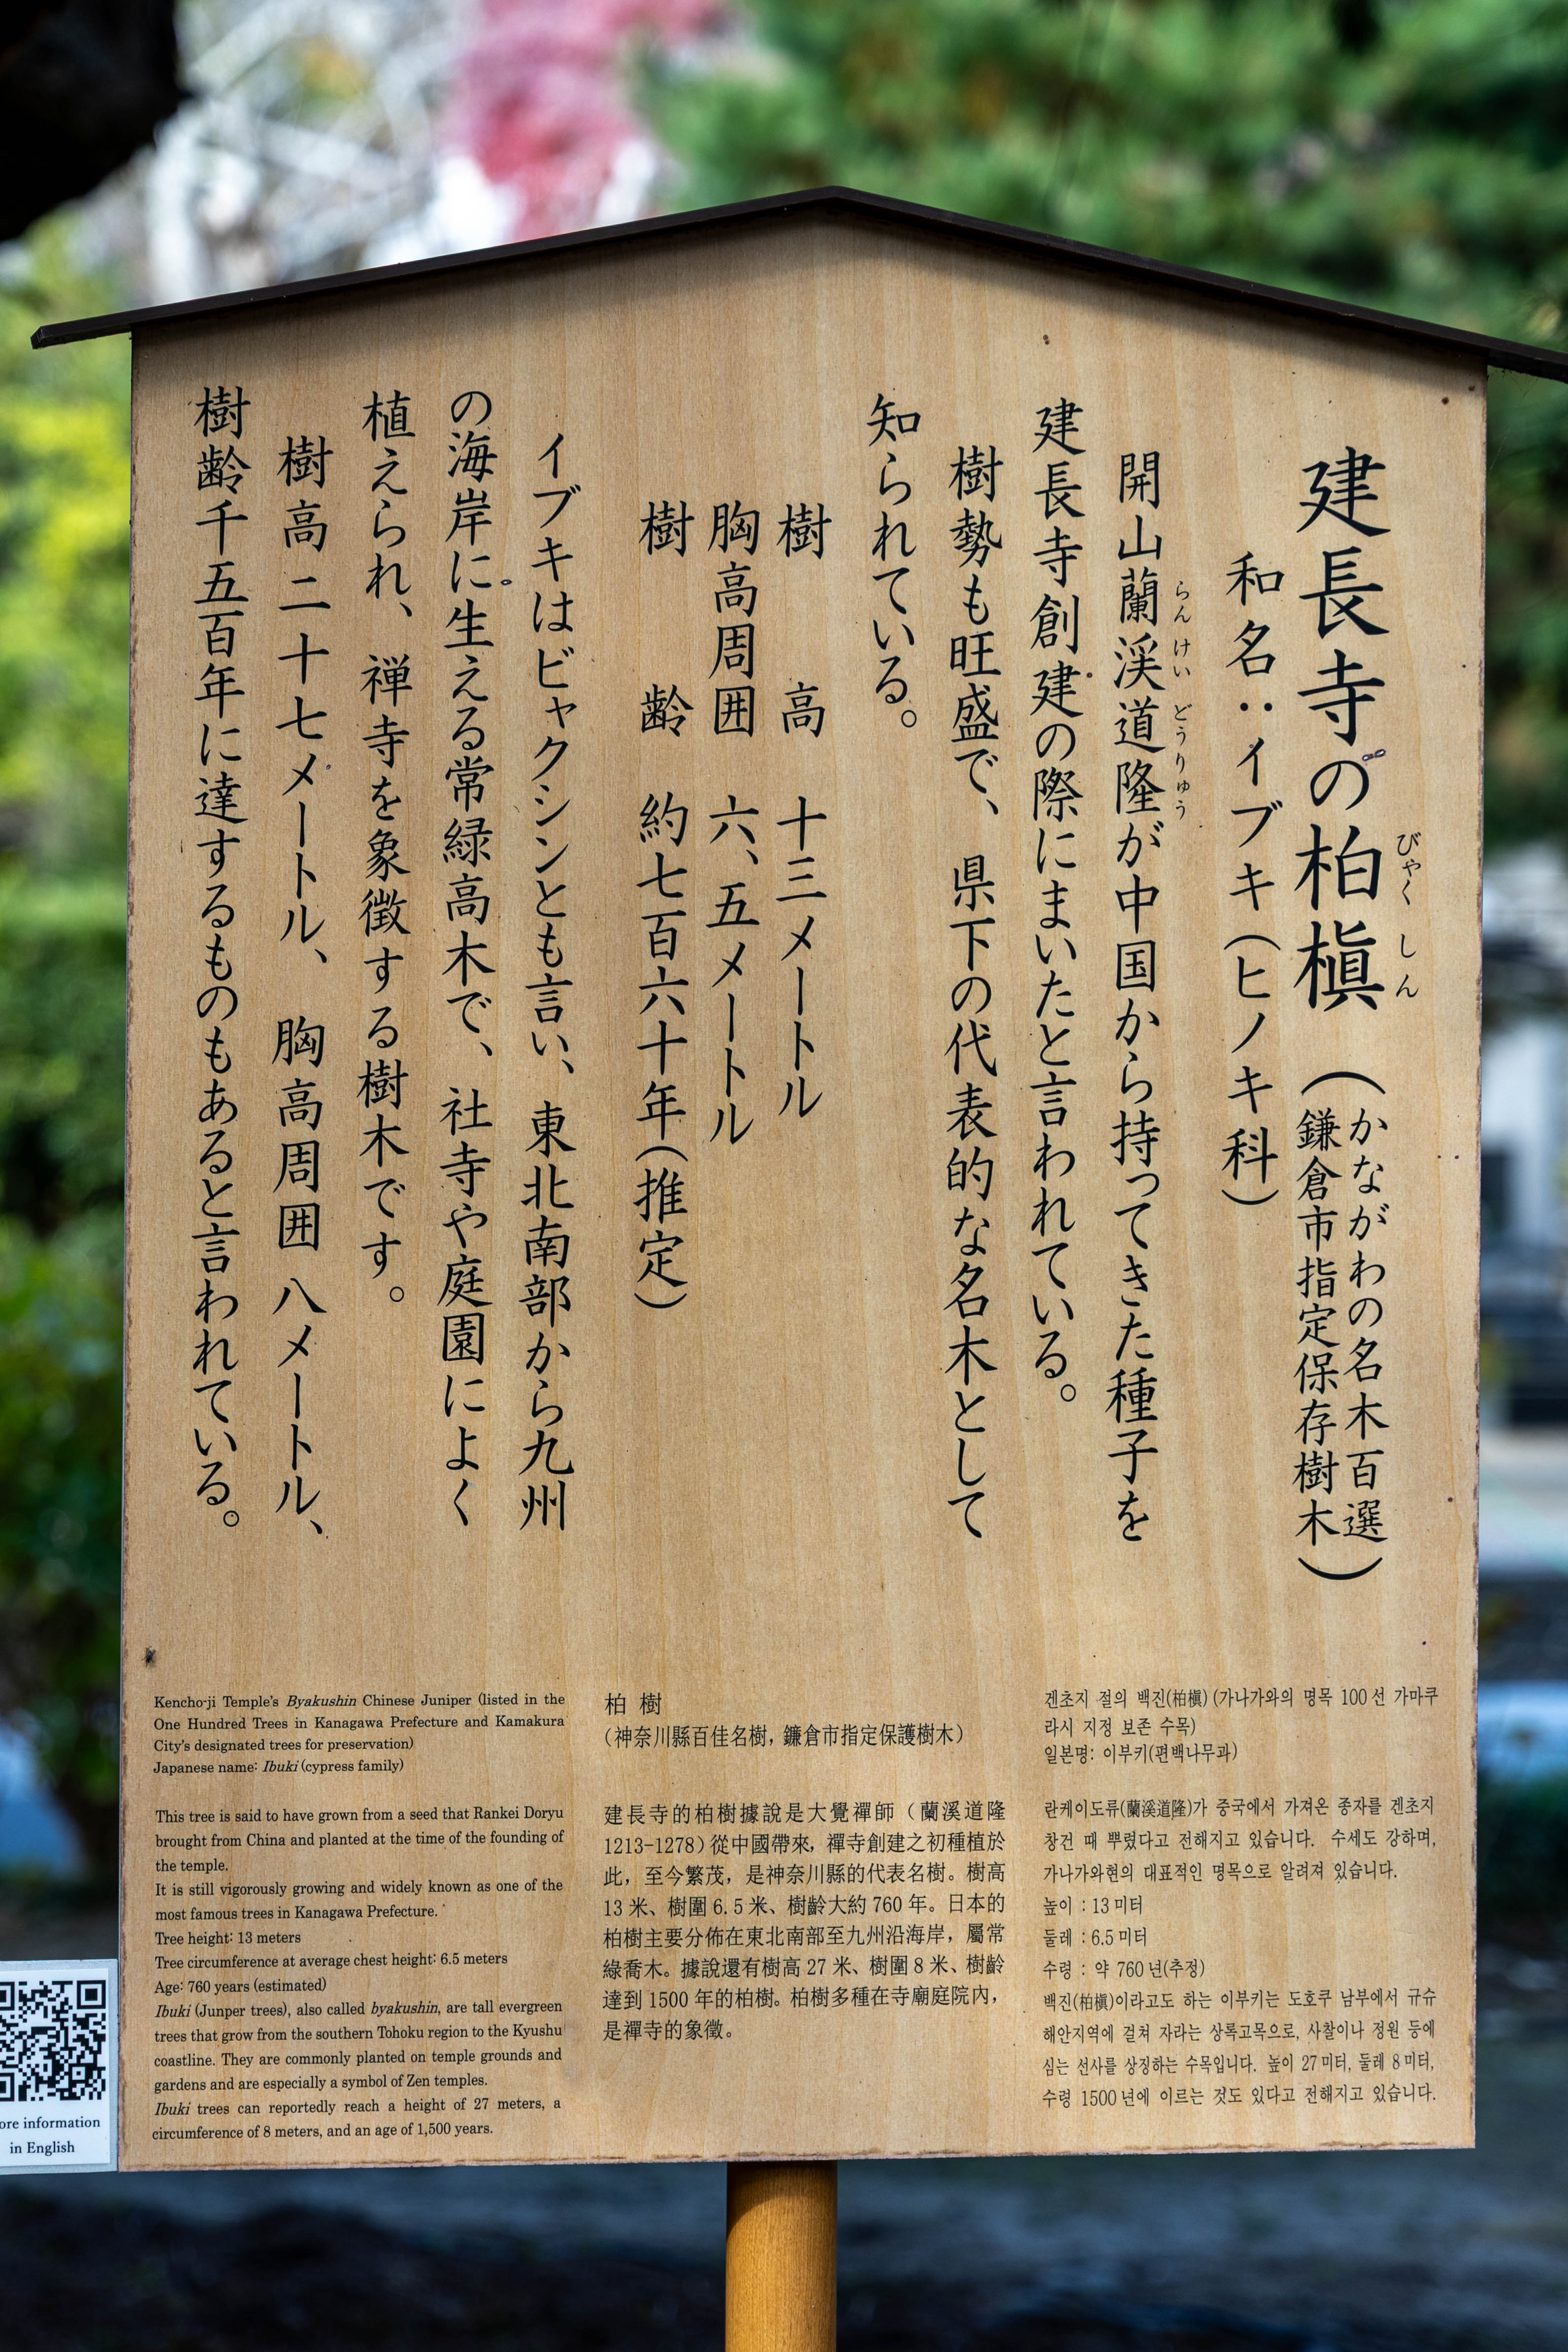 建長寺の柏槇
びゃくしん
（かながわの名木百選
鎌倉市指定保存樹木）
和名：イブキ（ヒノキ科）
開山蘭渓道隆が中国から持ってきた種子を
らんけいどうりゅう
建長寺創建の際にまいたと言われている。
樹勢も旺盛で、県下の代表的な名木として
知られている。
樹高 十三メートル
胸高周囲 六、五メートル
樹齢 約七百六十年（推定）
イブキはビャクシンとも言い、東北南部から九州
の海岸に生える常緑高木で、社寺や庭園によく
植えられ、禅寺を象徴する樹木です。
樹高 二十七メートル、胸高周囲 八メートル、
樹齢千五百年に達するものもあると言われている。
Kencho-ji Temple's Byakushin Chinese Juniper (listed in the
One Hundred Trees in Kanagawa Prefecture and Kamakura
City's designated trees for preservation)
Japanese name: Ibuki (cypress family)
This tree is said to have grown from a seed that Rankei Doryu
brought from China and planted at the time of the founding of
the temple.
It is still vigorously growing and widely known as one of the
most famous trees in Kanagawa Prefecture.
Tree height: 13 meters
Tree circumference at average chest height: 6.5 meters
Age: 760 years (estimated)
Ibuki (Junper trees), also called byakushin, are tall evergreen
trees that grow from the southern Tohoku region to the Kyushu
coastline. They are commonly planted on temple grounds and
gardens and are especially a symbol of Zen temples.
Ibuki trees can reportedly reach a height of 27 meters, a
circumference of 8 meters, and an age of 1,500 years.
柏 樹
（神奈川縣百佳名樹，鎌倉市指定保護樹木）
建長寺的柏樹據說是大覺禪師（蘭溪道隆
1213-1278）從中國帶來，禪寺創建之初種植於
此，至今繁茂，是神奈川縣的代表名樹。樹高
13 米、樹圍 6.5 米、樹齡大約 760 年。日本的
柏樹主要分佈在東北南部至九州沿海岸，屬常
綠喬木。據說還有樹高 27 米、樹圍 8 米、樹齡
達到 1500 年的柏樹。柏樹多種在寺廟庭院內，
是禪寺的象徵。
겐초지 절의 백진(柏槇) (가나가와의 명목 100 선 가마쿠
라시 지정 보존 수목)
일본명: 이부키(편백나무과)
란케이도류(蘭溪道隆)가 중국에서 가져온 종자를 겐초지
창건 때 뿌렸다고 전해지고 있습니다. 수세도 강하며,
가나가와현의 대표적인 명목으로 알려져 있습니다.
높이 : 13 미터
둘레 : 6.5 미터
수령 : 약 760 년(추정)
백진(柏槇)이라고도 하는 이부키는 도호쿠 남부에서 규슈
해안지역에 걸쳐 자라는 상록고목으로, 사찰이나 정원 등에
심는 선사를 상징하는 수목입니다. 높이 27 미터, 둘레 8 미터,
수령 1500 년에 이르는 것도 있다고 전해지고 있습니다.
ore information
in English